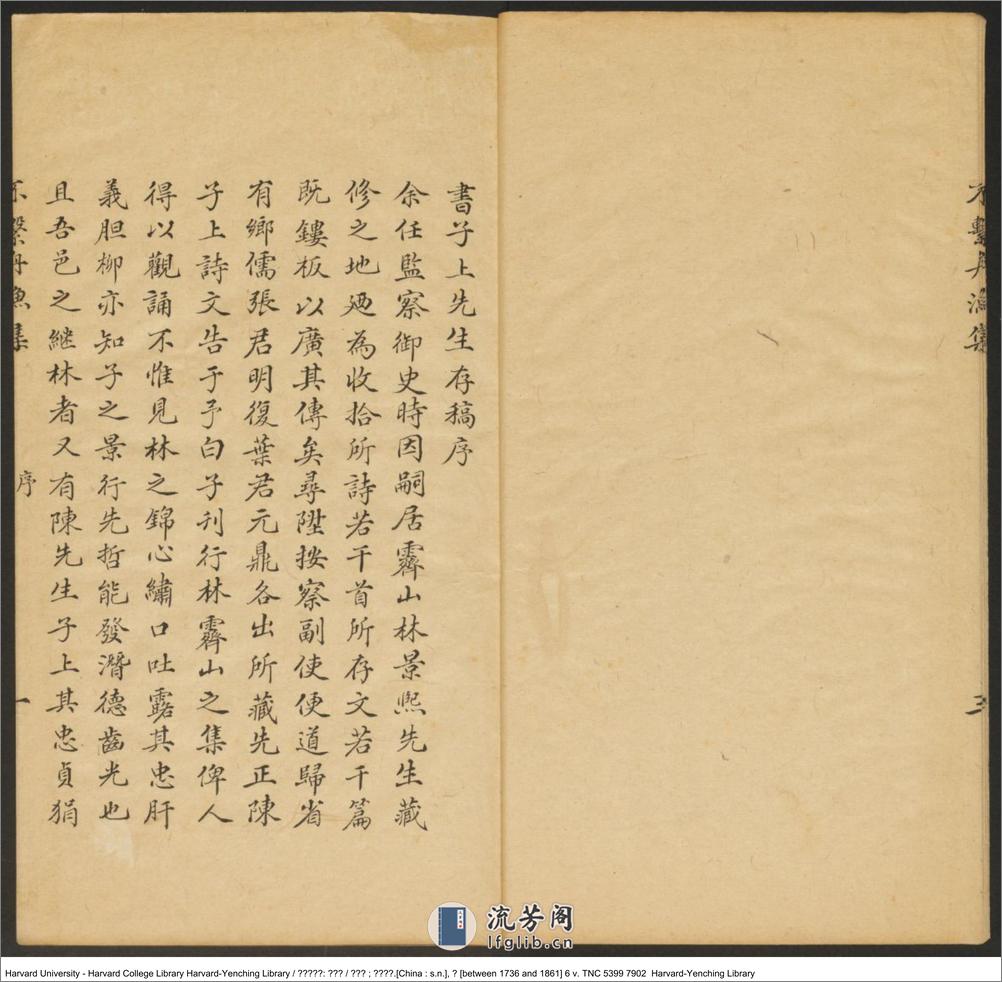 不繫舟漁集
三
書子上先生存稿序
余任監察御史時因嗣居霽山林景熙先生藏
修之地廼為收拾所詩若干首所存文若干篇
既鏤板以廣其傳矣尋陞按察副使便道歸省
有鄉儒張君明復葉君元鼎各出所藏先正陳
子上詩文告于予曰子刊行林霽山之集俾人
得以觀誦不惟見林之錦心繡口吐露其忠肝
義胆柳亦知子之景行先哲能發潛德齒光也
且吾邑之継林者又有陳先生子上其忠貞狷
不繫舟漁集
序
一
流芳阁
lfglib.cn
Harvard University - Harvard College Library Harvard-Yenching Library / ?????: ??? / ??? ; ????.[China : s.n.], ? [between 1736 and 1861] 6 v. TNC 5399 7902 Harvard-Yenching Library